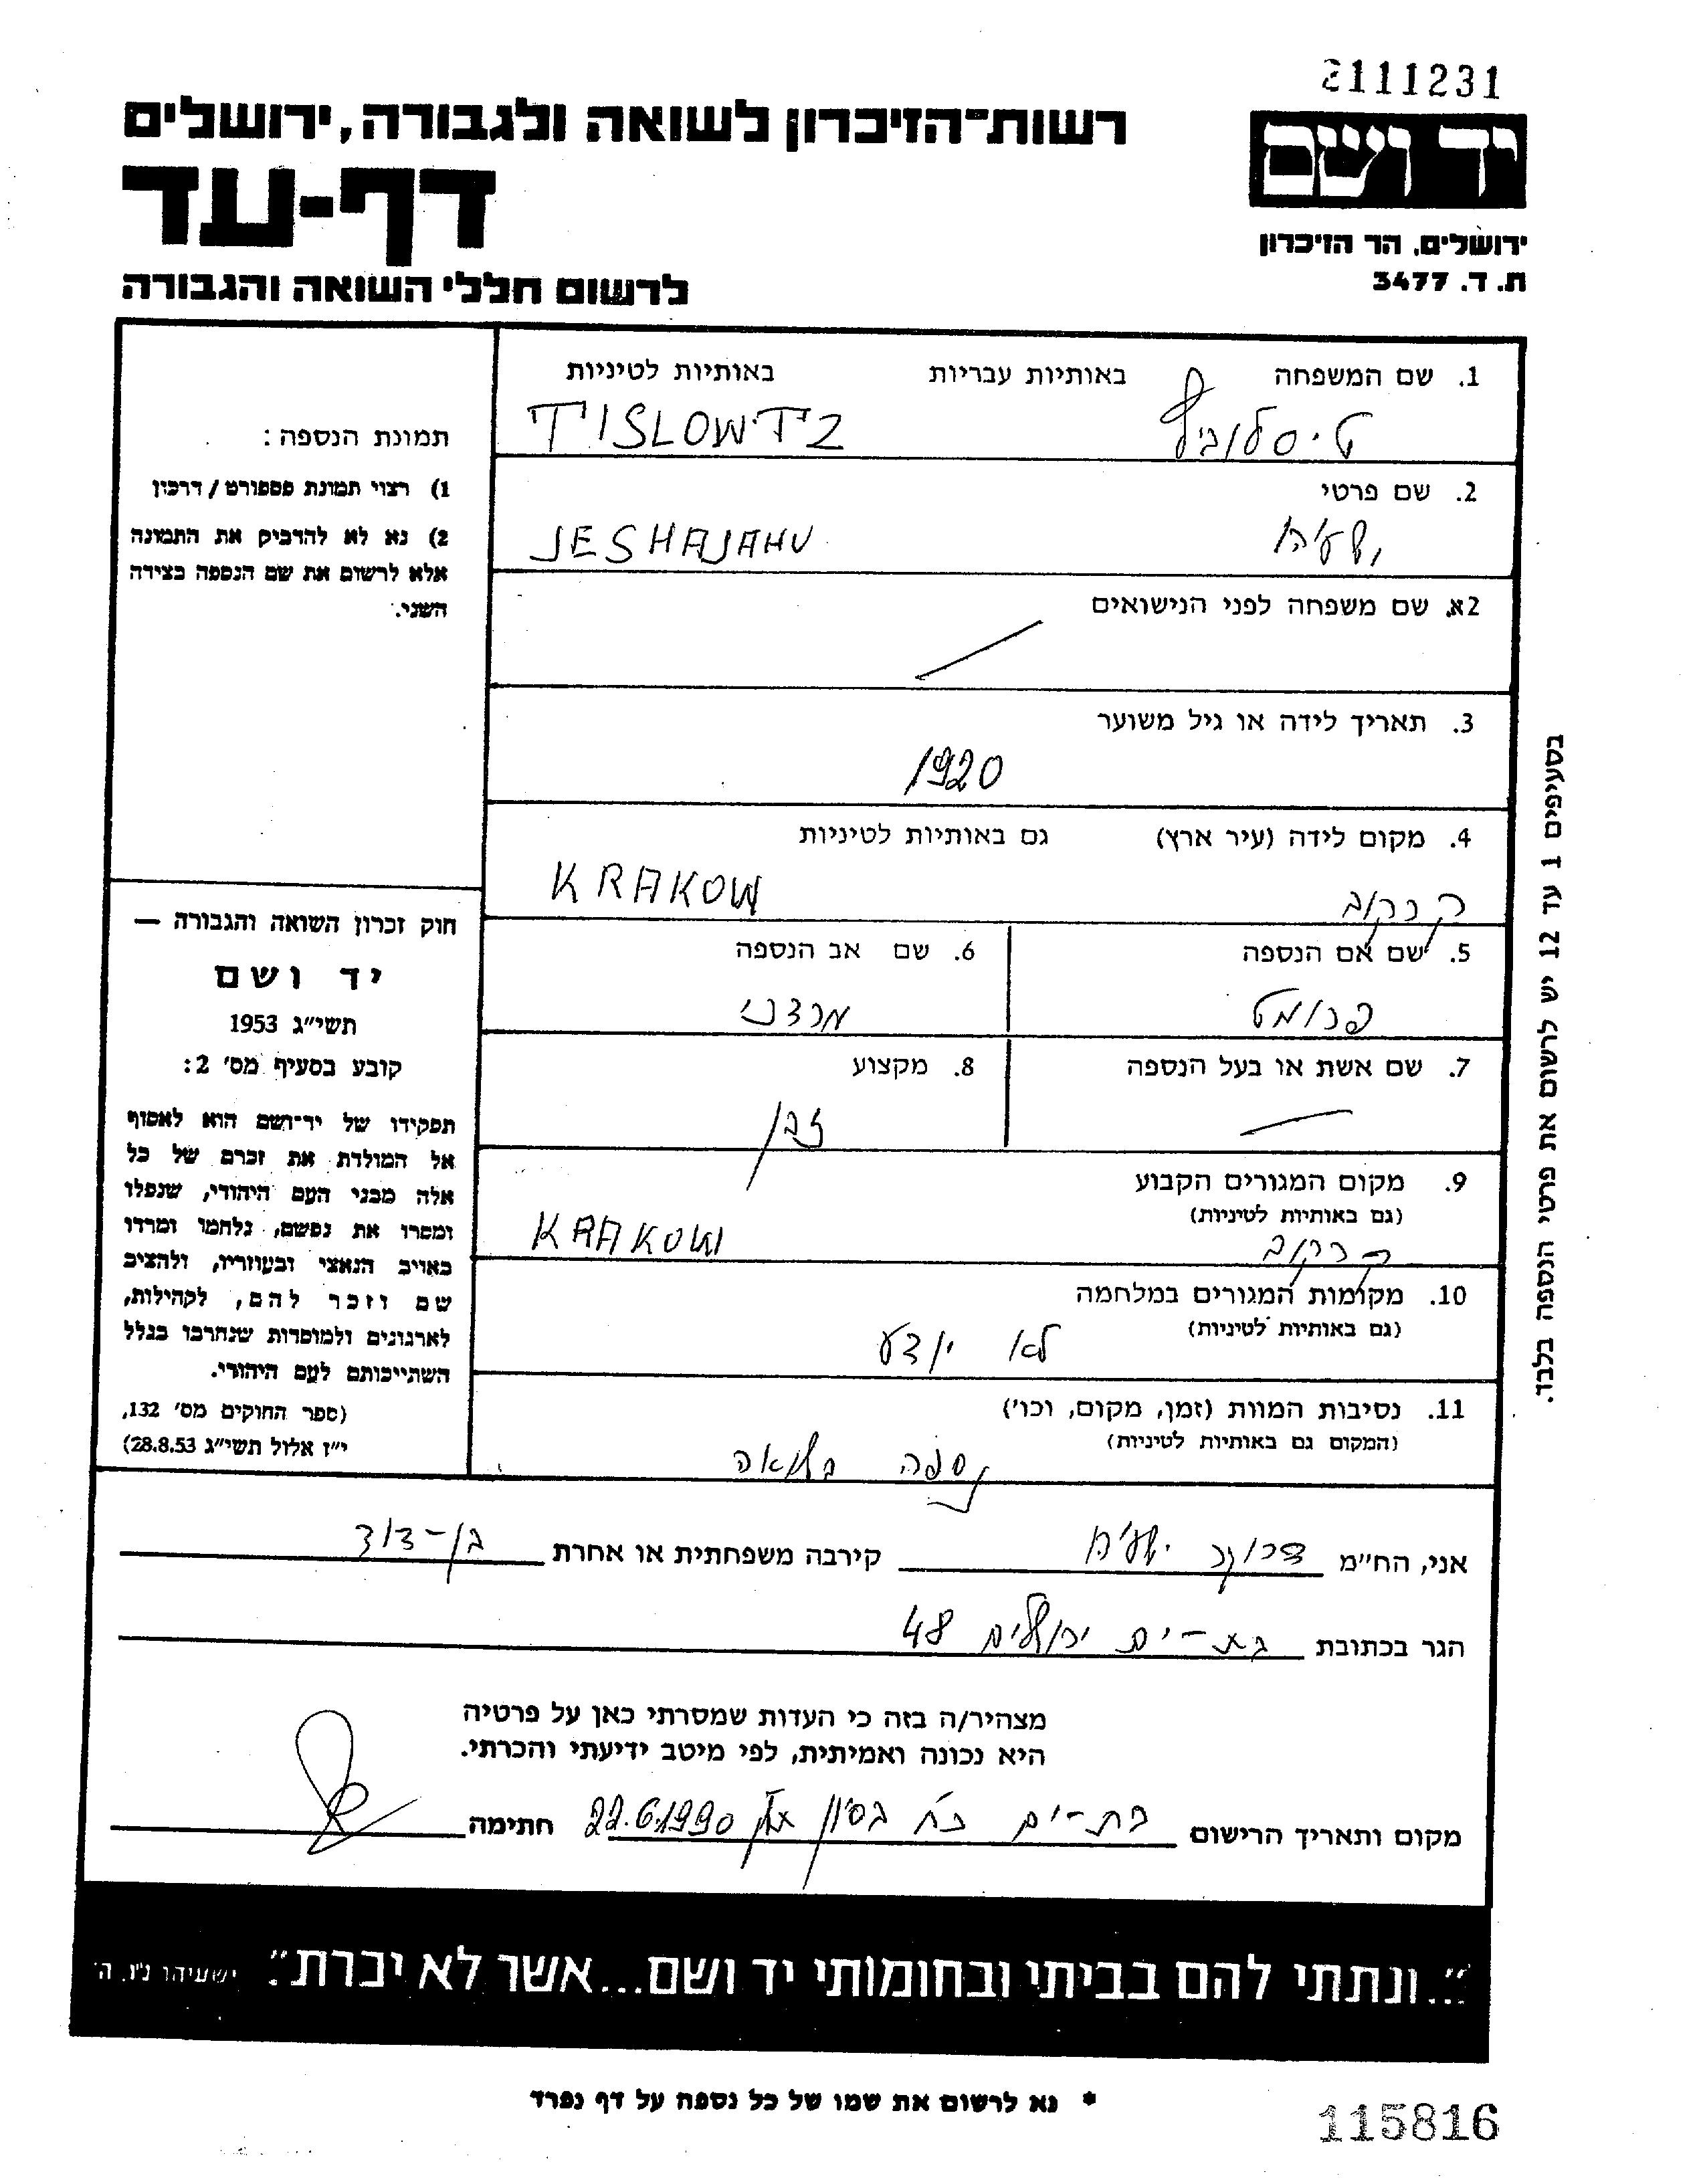 2111231
רשות-הזיכרון לשואה ולגבורה, ירושלים
יד ושם
דף-עד
ירושלים, הר הזיכרון
ת. ד. 3477
לרשום חללי השואה והגבורה
1. שם המשפחה באותיות עבריות באותיות לטיניות
טיסלוביץ TISLOWITZ
2. שם פרטי
ישעיהו JESHAJAHU
2א. שם משפחה לפני הנישואים
3. תאריך לידה או גיל משוער
1920
4. מקום לידה (עיר ארץ) גם באותיות לטיניות
קרקוב KRAKOW
5. שם אם הנספה 6. שם אב הנספה
פרומט מרדכי
7. שם אשת או בעל הנספה 8. מקצוע
9. מקום המגורים הקבוע
(גם באותיות לטיניות)
קרקוב KRAKOW
10. מקומות המגורים במלחמה
(גם באותיות לטיניות)
לא יודע
11. נסיבות המוות (זמן, מקום, וכו')
(המקום גם באותיות לטיניות)
נספה בשואה
תמונת הנספה:
1) רצוי תמונת פספורט/דרכון
2) נא לא להדביק את התמונה
אלא לרשום את שם הנספה בצידה
השני.
חוק זכרון השואה והגבורה —
יד ושם
תשי"ג 1953
קובע בסעיף מס' 2:
תפקידו של יד-ושם הוא לאסוף
אל המולדת את זכרם של כל
אלה מבני העם היהודי, שנפלו
ומסרו את נפשם, נלחמו ומרדו
באויב הנאצי ובעוזריו, ולהציב
שם וזכר להם, לקהילות,
לארגונים ולמוסדות שנחרבו בגלל
השתייכותם לעם היהודי.
(ספר החוקים מס' 132,
י"ז אלול תשי"ג 28.8.53)
בסעיפים 1 עד 12 יש לרשום את פרטי הנספה בלבד.
אני, הח"מ ישעיהו קירבה משפחתית או אחרת בן-דוד
הגר בכתובת בת-ים ירושלים 48
מצהיר/ה בזה כי העדות שמסרתי כאן על פרטיה
היא נכונה ואמיתית, לפי מיטב ידיעתי והכרתי.
מקום ותאריך הרישום בת-ים בסיון 22.6.1990 חתימה
"...ונתתי להם בביתי ובחומותי יד ושם...אשר לא יכרת". ישעיהו נ"ו, ה'
* נא לרשום את שמו של כל נספה על דף נפרד
115816